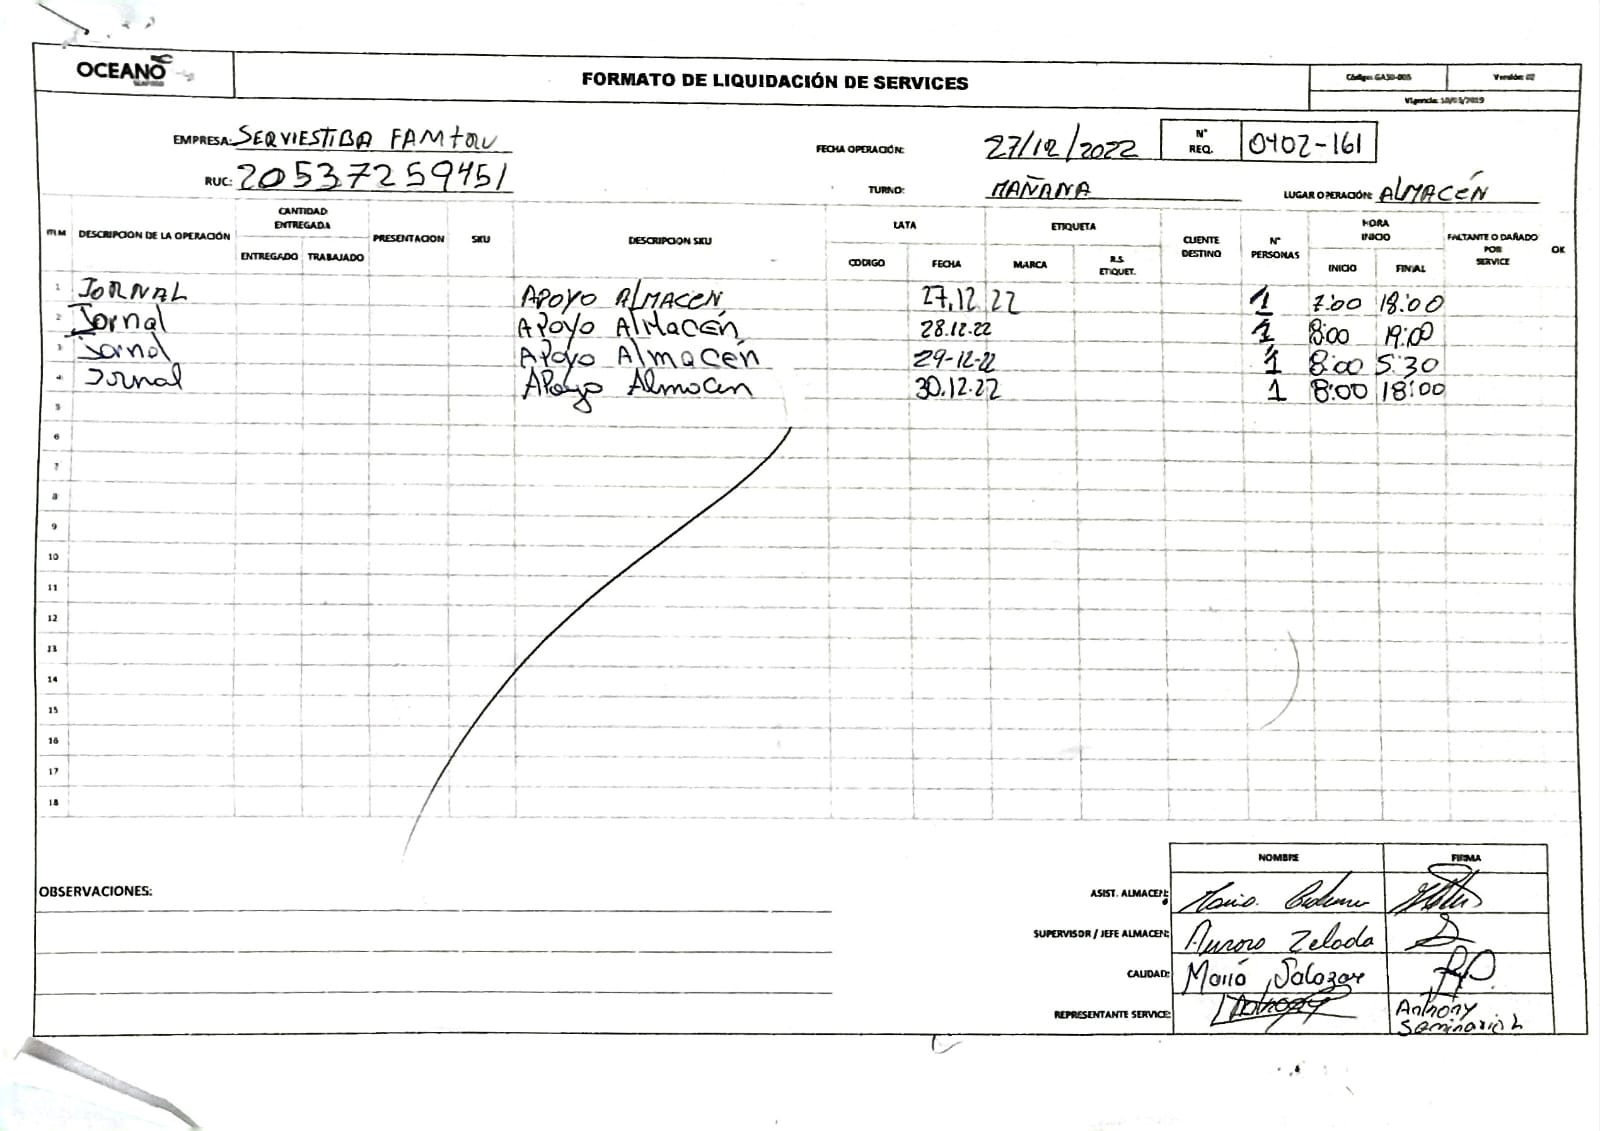 OCEANO
FORMATO DE LIQUIDACIÓN DE SERVICES
Código: GASO-005 Versión: 02
Vigencia: 10/05/2019
EMPRESA: SERVIESTIBA
FECHA OPERACIÓN: 27/12/2022
N° REQ. 0402-161
RUC: 20537259451
TURNO: MAÑANA
LUGAR OPERACIÓN: ALMACÉN
ITEM DESCRIPCION DE LA OPERACIÓN CANTIDAD ENTREGADA PRESENTACION SKU DESCRIPCION SKU LATA ETIQUETA CLIENTE DESTINO N° PERSONAS HORA INICIO FALTANTE O DAÑADO POR SERVICE OK
ENTREGADO TRABAJADO CODIGO FECHA MARCA R.S. ETIQUET. INICIO FINAL
1 JORNAL APOYO ALMACEN 27.12.22 1 7:00 18:00
2 Jornal APOYO AlMACÉN 28.12.22 1 8:00 19:00
3 Jornal APOYO Almacén 29-12-22 1 8:00 5:30
4 Jornal APoyo Almacen 30.12.22 1 8:00 18:00
5
6
7
8
9
10
11
12
13
14
15
16
17
18
NOMBRE FIRMA
OBSERVACIONES:
ASIST. ALMACEN:
SUPERVISOR / JEFE ALMACEN: Aurora Zelada
CALIDAD: María Salazar
REPRESENTANTE SERVICE: Anthony Seminario L